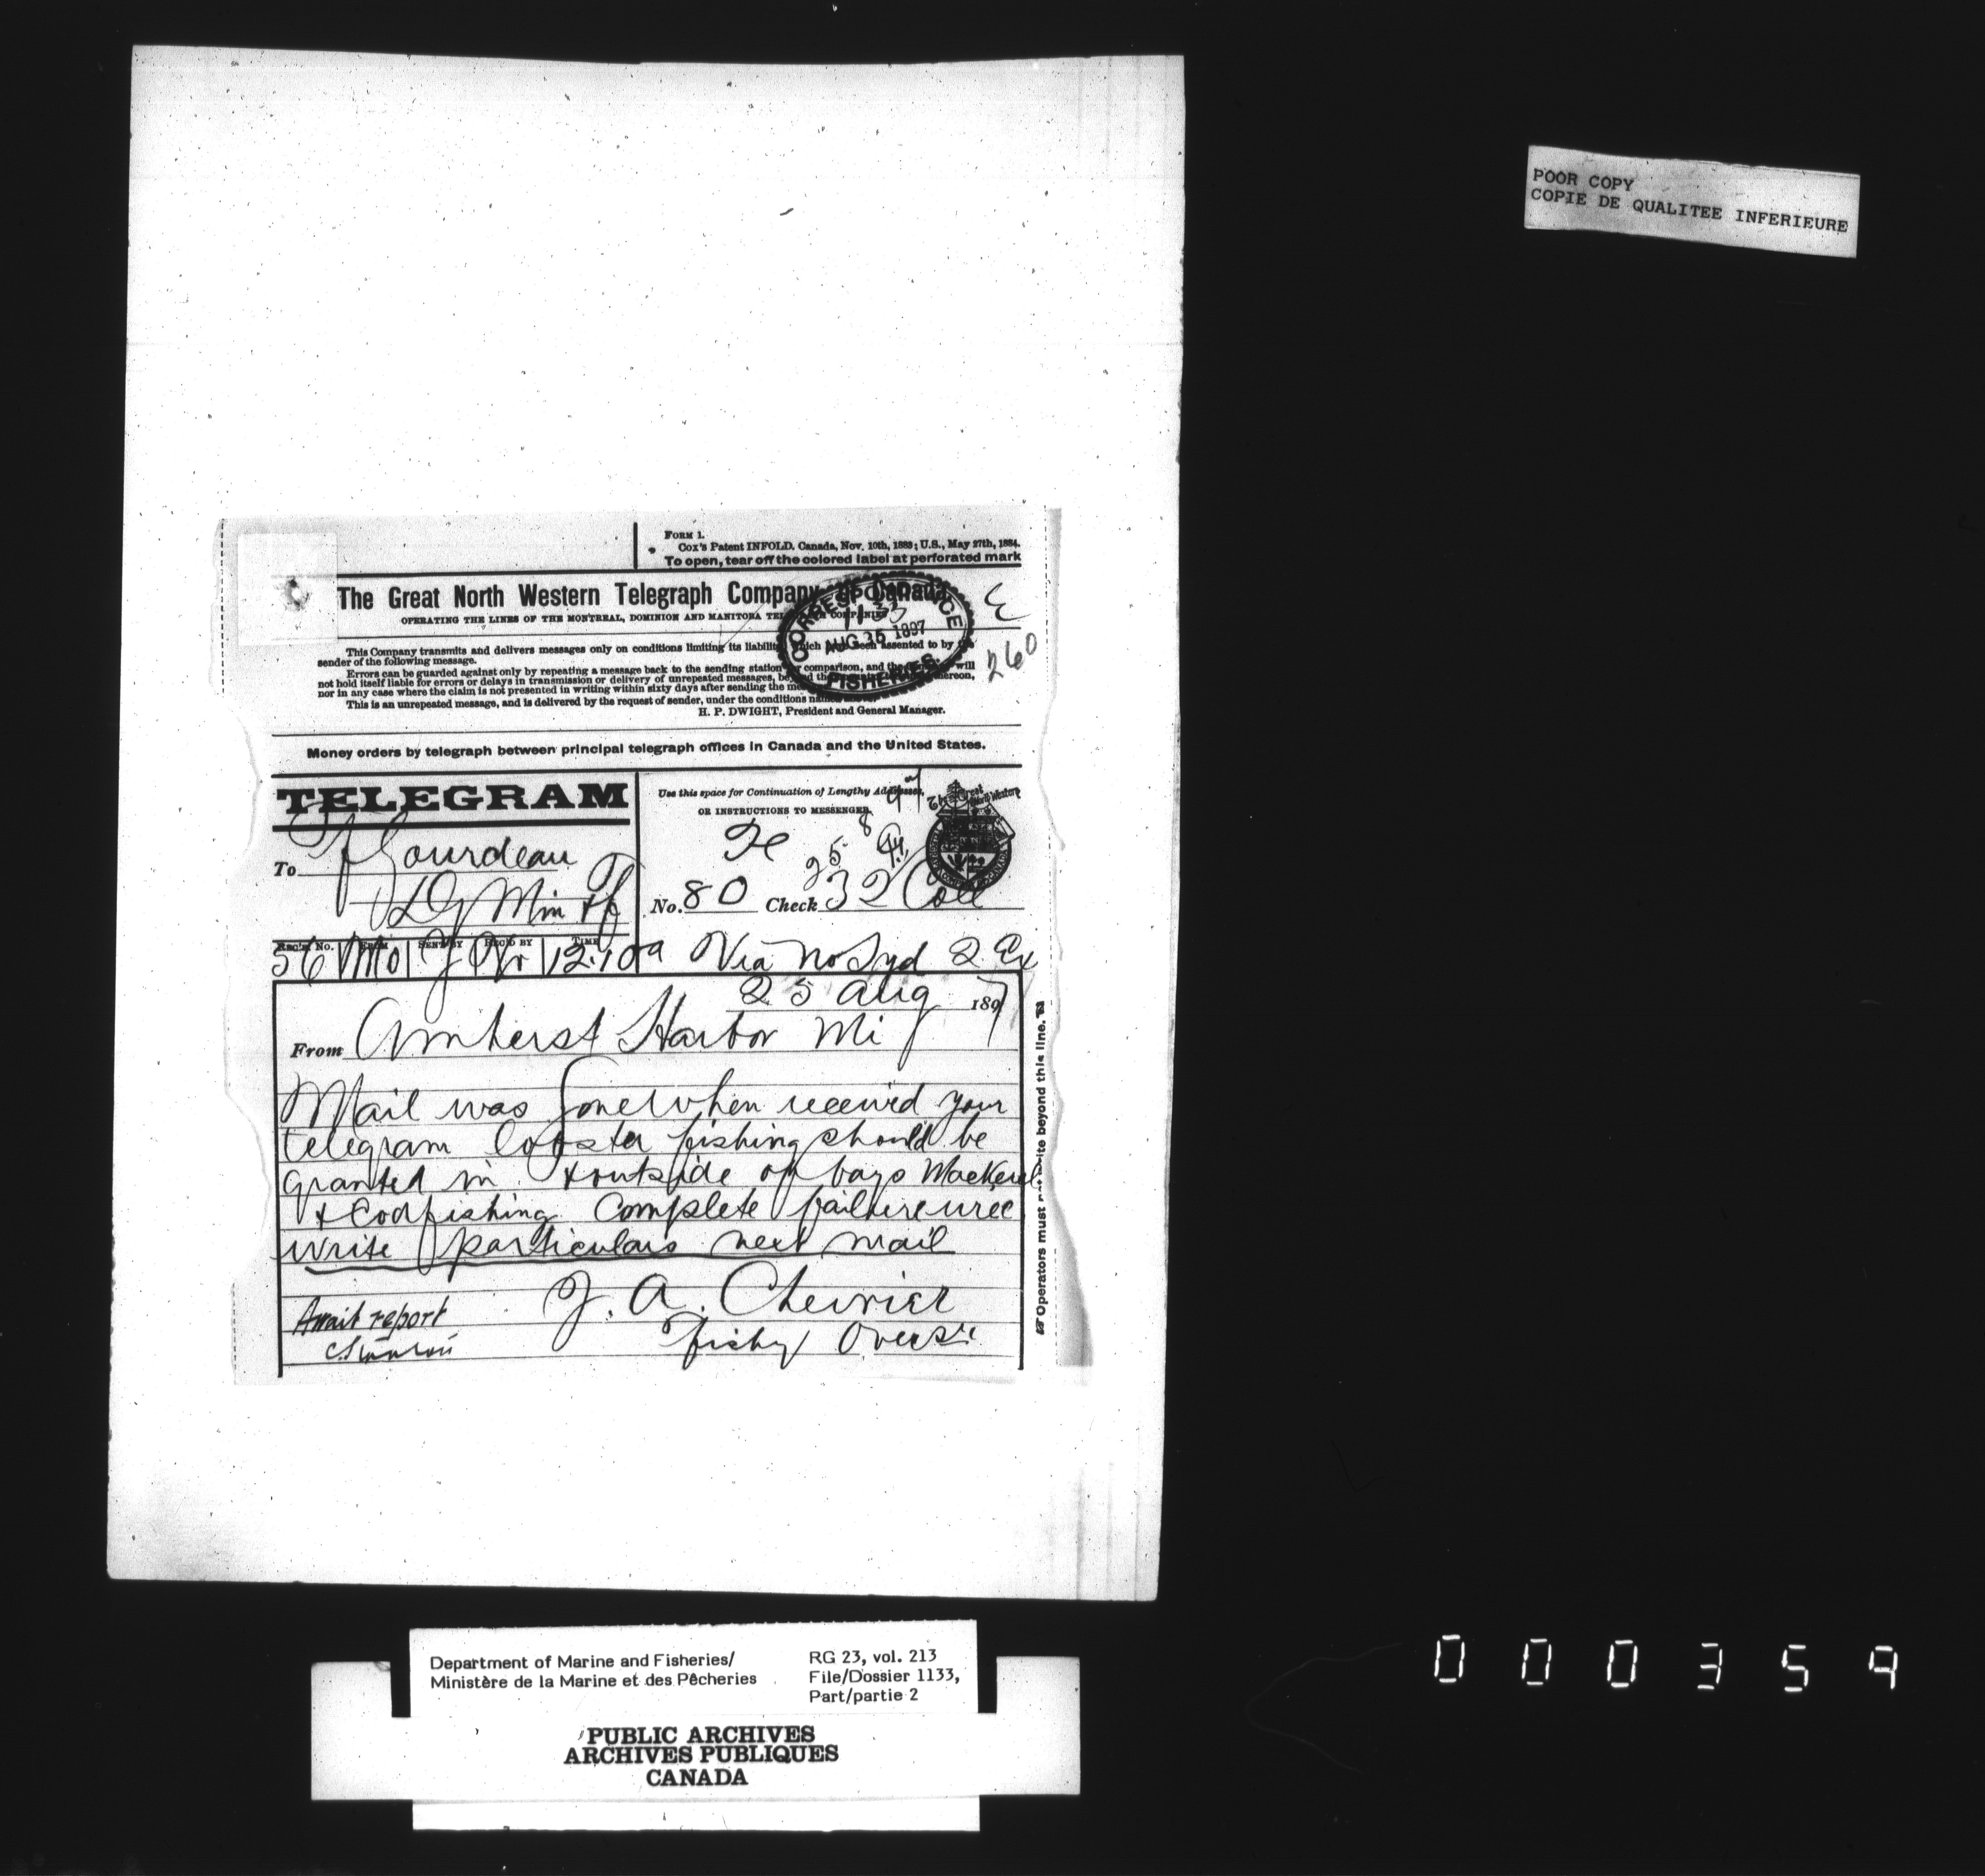 POOR COPY
COPIE DE QUALITEE INFERIEURE
FORM 1.
Cox's Patent INFOLD. Canada, Nov. 10th, 1883; U.S., May 27th, 1884.
To open, tear off the colored label at perforated mark
The Great North Western Telegraph Company of Canada
OPERATING THE LINES OF THE MONTREAL, DOMINION AND MANITOBA TELEGRAPH COMPANIES
CORRESPONDENCE
1133
AUG 1897
FISHERIES.
260
This Company transmits and delivers messages only on conditions limiting its liability, which have been assented to by the
sender of the following message.
Errors can be guarded against only by repeating a message back to the sending station for comparison, and the Company will
not hold itself liable for errors or delays in transmission or delivery of unrepeated messages, beyond the amount of tolls paid thereon,
nor in any case where the claim is not presented in writing within sixty days after sending the message.
This is an unrepeated message, and is delivered by the request of sender, under the conditions named above.
H. P. DWIGHT, President and General Manager.
Money orders by telegraph between principal telegraph offices in Canada and the United States.
TELEGRAM
Use this space for Continuation of Lengthy Addresses,
OR INSTRUCTIONS TO MESSENGER.
The Great North Western
To F Gourdeau
Dy Min + F
25 8 97
No. 80 Check 32 Coll
REC'R NO. FROM SENT BY REC'D BY TIME
56 Mo 12.10a Via No Syd 2 Ex
25 Aug 1897
From Amherst Harbor Mi
Mail was gone when received your
telegram lobster fishing should be
granted in + outside of bays Mackerel
+ Codfishing Complete failure
write particulars next mail
J. A. Chevrier
Fishy Overs
Await report
Operators must not write beyond this line.
Department of Marine and Fisheries/
Ministère de la Marine et des Pêcheries
RG 23, vol. 213
File/Dossier 1133,
Part/partie 2
PUBLIC ARCHIVES
ARCHIVES PUBLIQUES
CANADA
000359